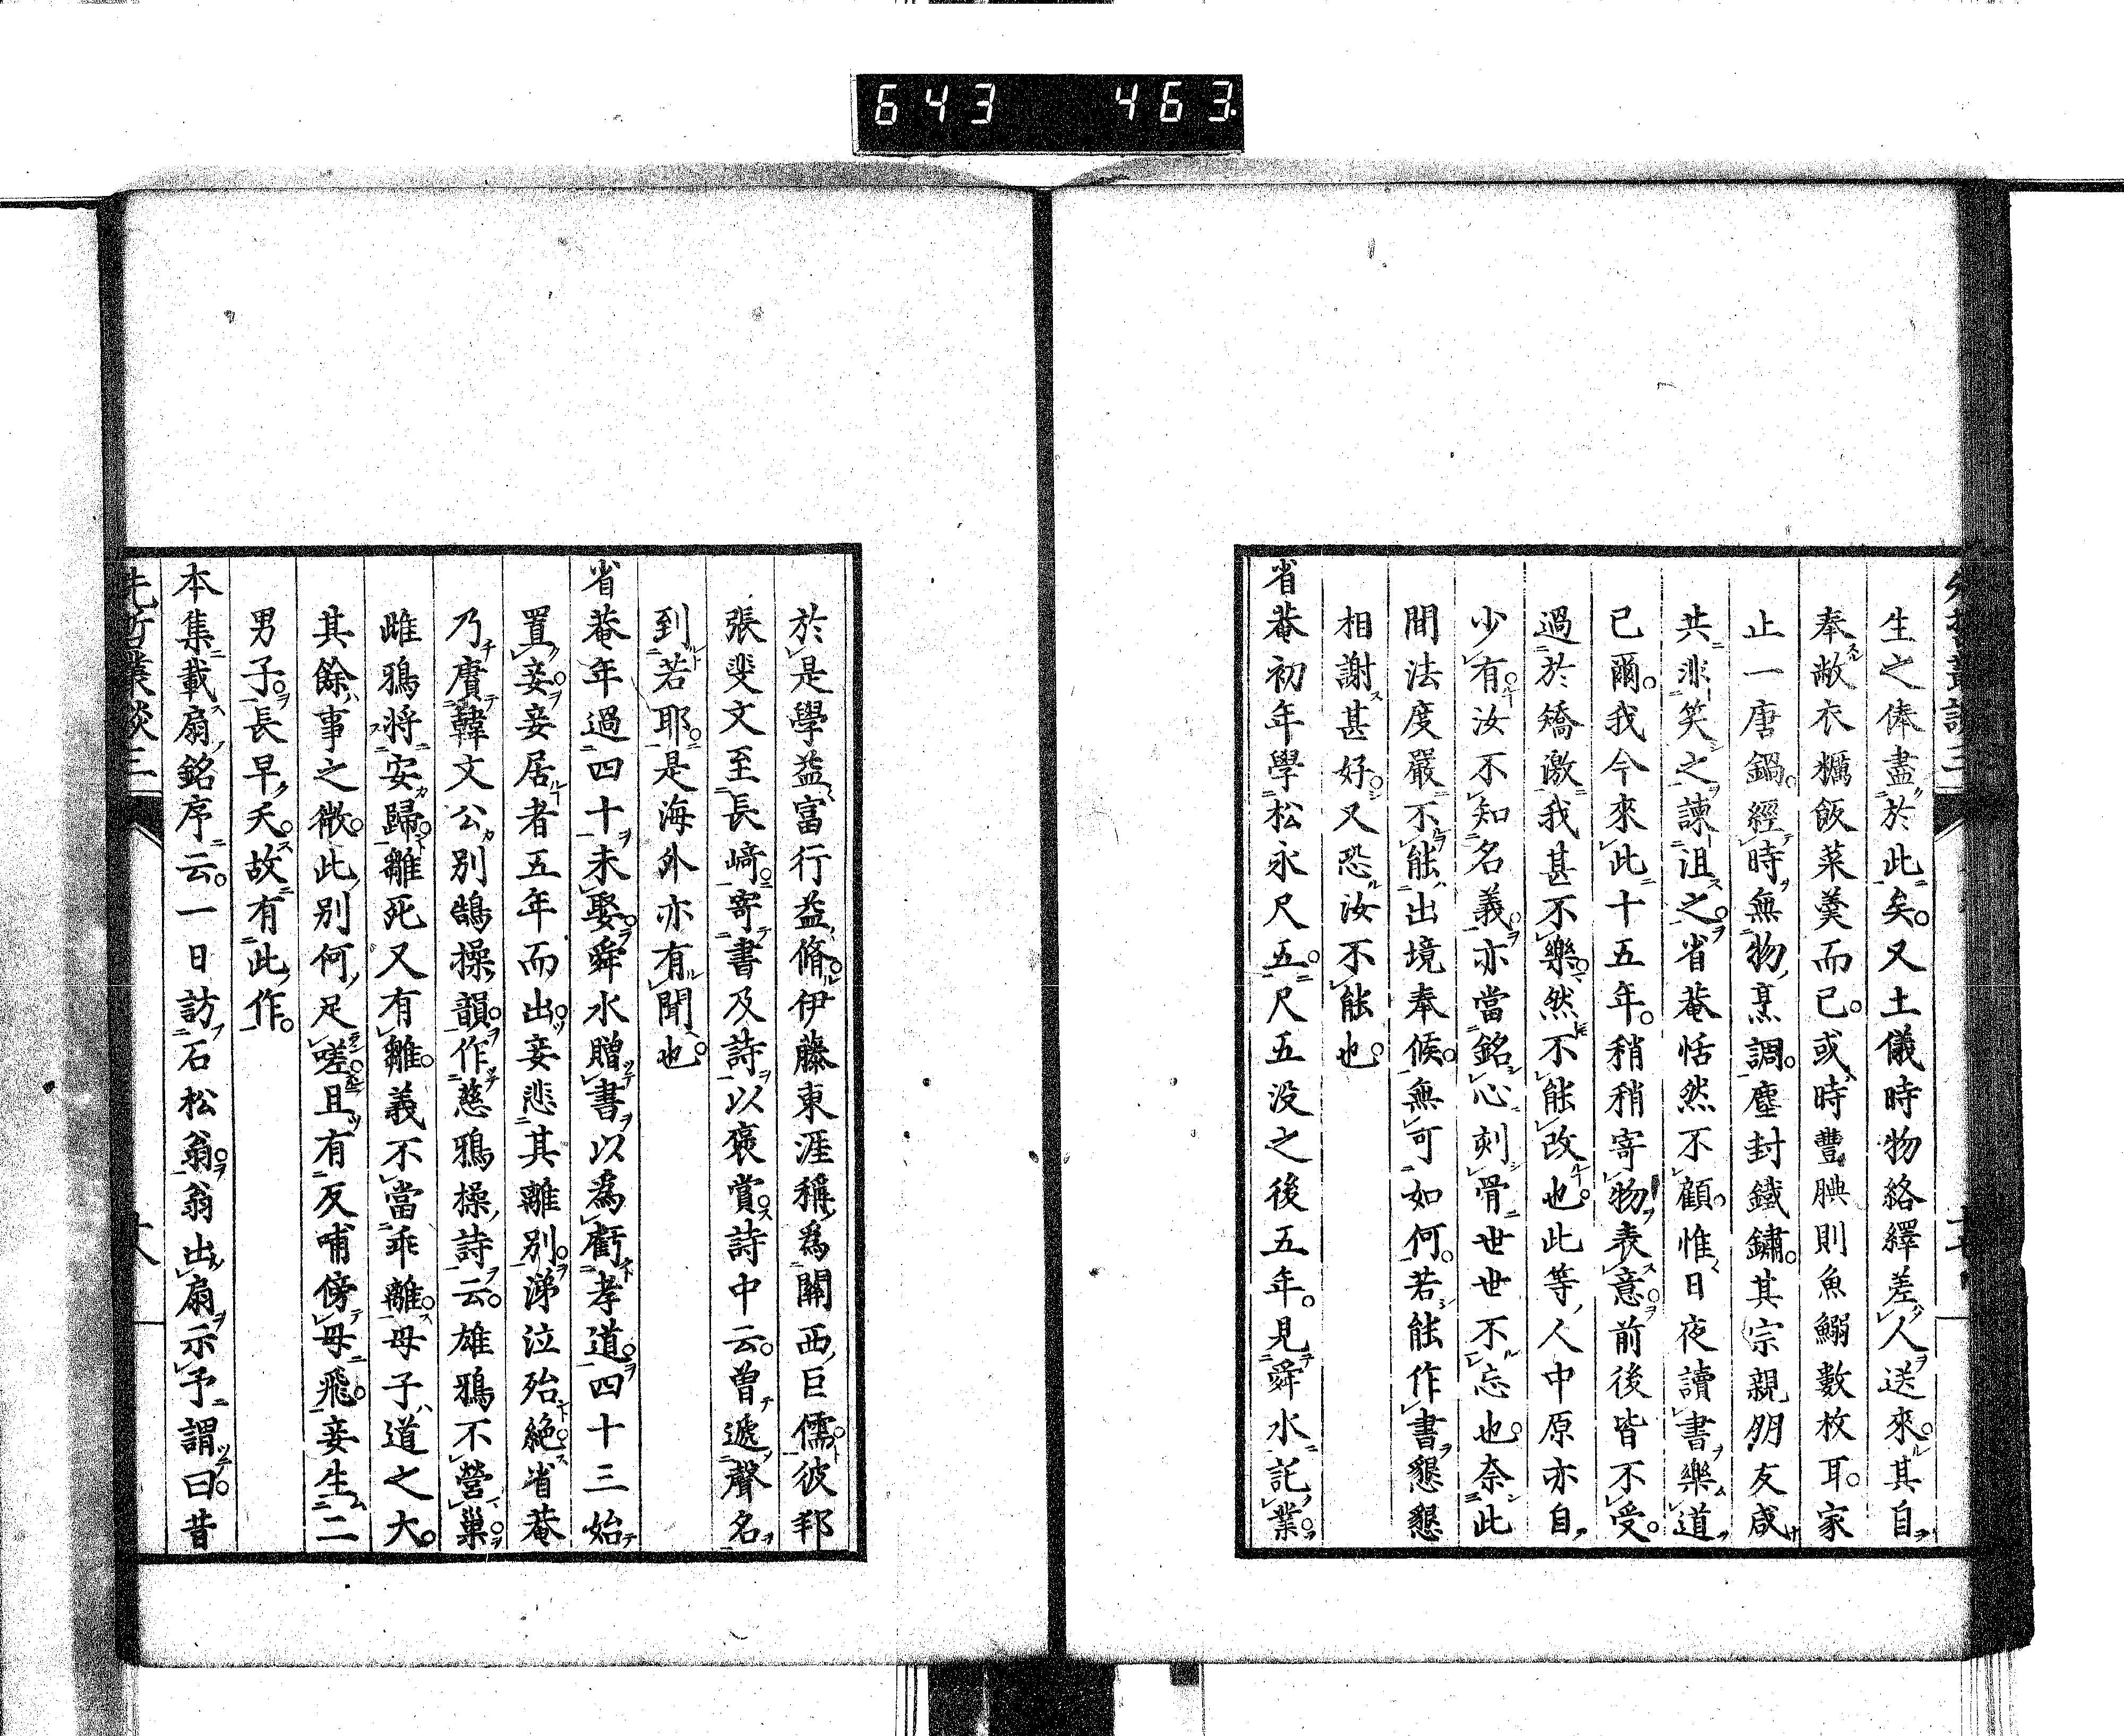 643 463
生之俸盡於此矣又土儀時物絡繹差人送來其自
奉敝衣糲飯菜羹而已或時豐腆則魚鰯數枚耳家
止一唐鍋經時無物烹調塵封鐵鏽其宗親朋友咸
共非笑之諫沮之省菴恬然不顧惟日夜讀書樂道
已爾我今來此十五年稍稍寄物表意前後皆不受
過於矯激我甚不樂然不能改也此等人中原亦自
少有汝不知名義亦當銘心刻骨世世不忘也奈此
間法度嚴不能出境奉候無可如何若能作書懇懇
相謝甚好又恐汝不能也
省菴初年學松永尺五尺五没之後五年見舜水託業
於是學益富行益脩伊藤東涯稱爲關西巨儒彼邦
張斐文至長﨑寄書及詩以褒賞詩中云曾遞聲名
到若耶是海外亦有聞也
省菴年過四十未娶舜水贈書以爲虧孝道四十三始
置妾妾居者五年而出妾悲其離別涕泣殆絶省菴
乃賡韓文公別鵠操韻作慈鴉操詩云雄鴉不營巢
雌鴉将安歸雛死又有雛義不當乖離母子道之大
其餘事之微此別何足嗟且有反哺傍母飛妾生二
男子長早夭故有此作
本集載扇銘序云一日訪石松翁翁出扇示予謂曰昔
先哲叢談三